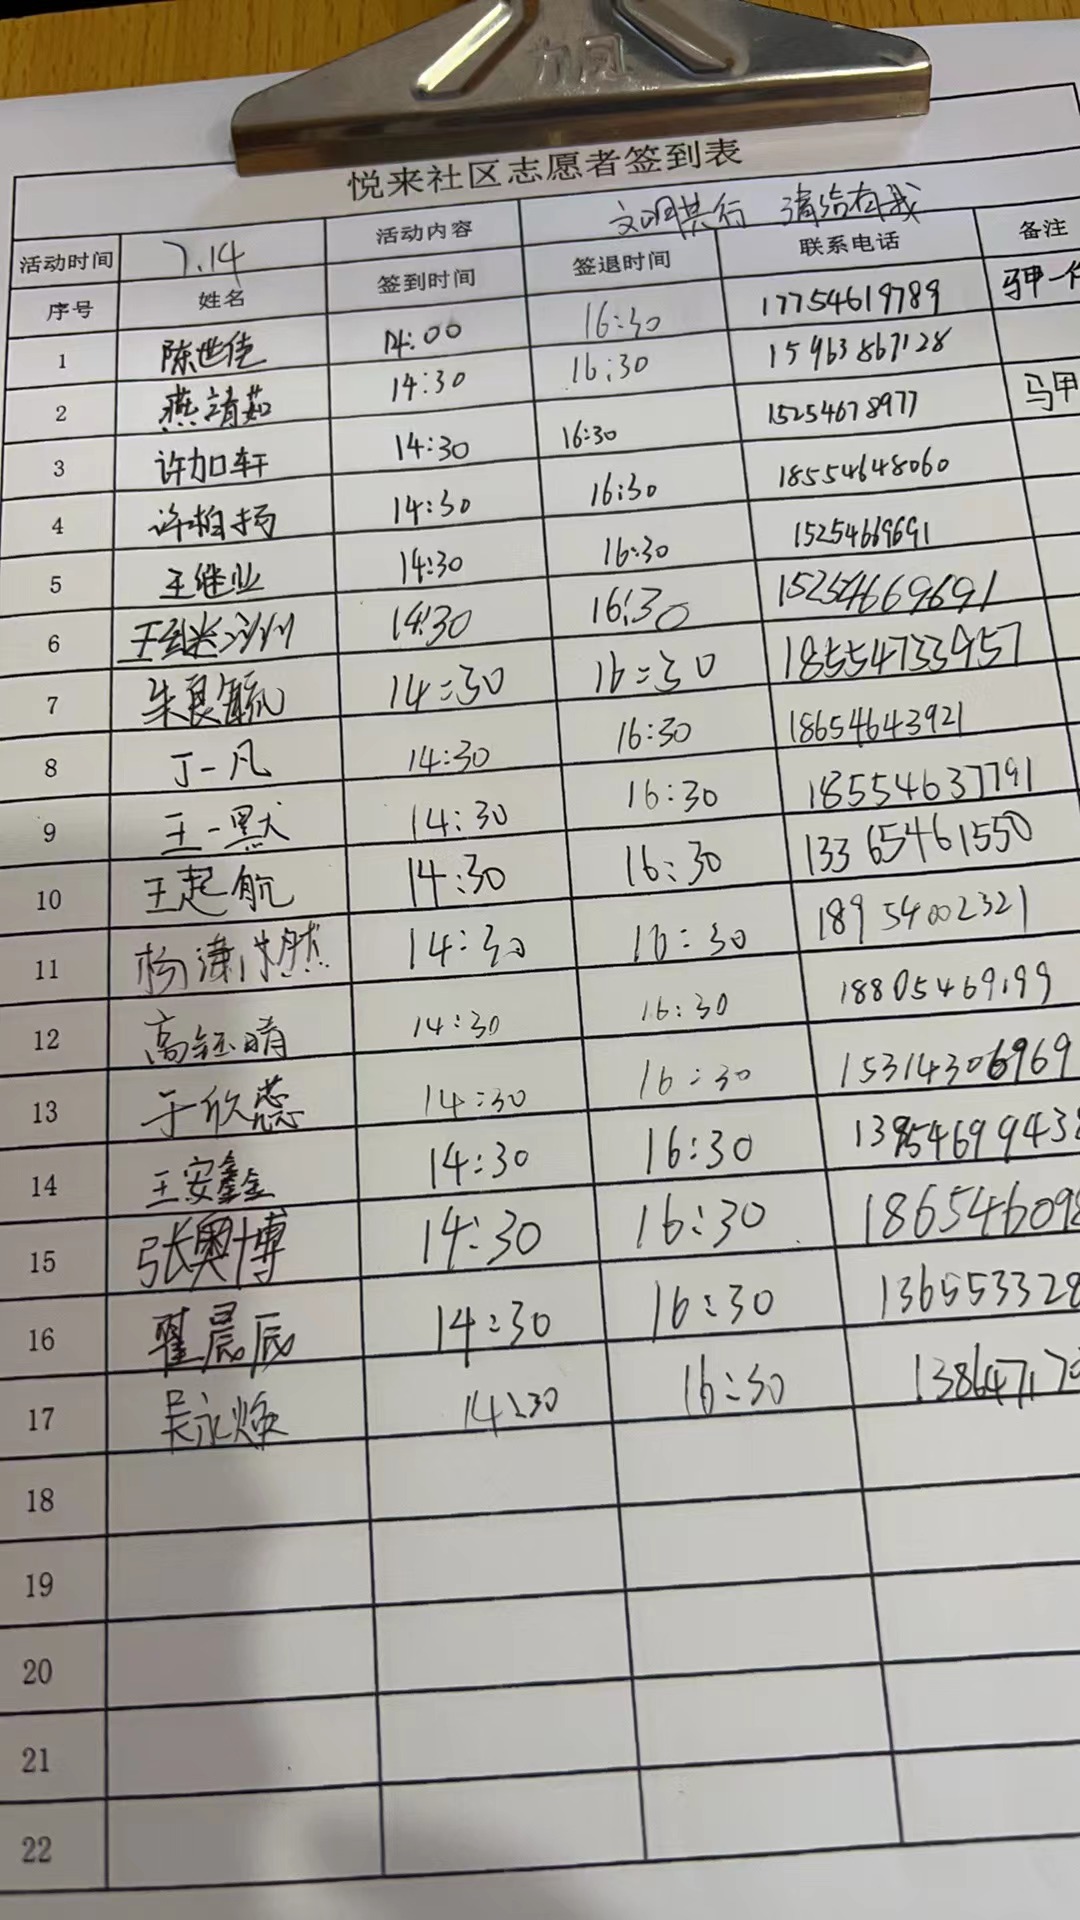 力风
悦来社区志愿者签到表
活动时间 7.14 活动内容 文明共行 清洁有我
序号 姓名 签到时间 签退时间 联系电话 备注
1 陈世佳 14:00 16:30 17754619789 马甲一件
2 燕靖茹 14:30 16:30 15963867128
3 许加轩 14:30 16:30 15254678977 马甲
4 许柏扬 14:30 16:30 18554648060
5 王继业 14:30 16:30 15254669691
6 14:30 16:30 15254669691
7 朱良毓 14:30 16:30 18554733957
8 丁一凡 14:30 16:30 18654643921
9 王一默 14:30 16:30 18554637791
10 王起航 14:30 16:30 13365461550
11 杨潇然 14:30 16:30 18954002321
12 高钰晴 14:30 16:30 18805469199
13 于欣蕊 14:30 16:30 15314306969
14 王安鑫 14:30 16:30
15 张奥博 14:30 16:30 186546098
16 翟晨辰 14:30 16:30 136553328
17 吴永焕 14:30 16:30 13864717
18
19
20
21
22